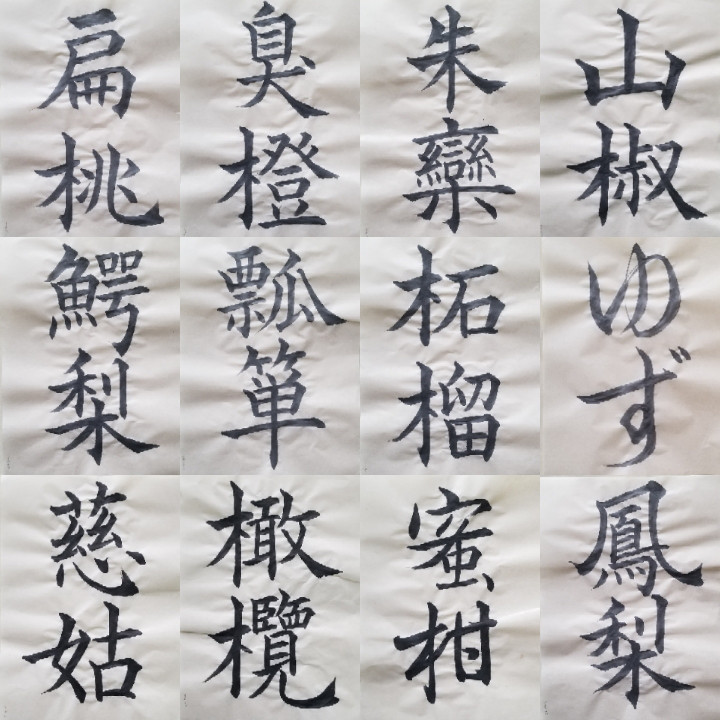 扁桃
臭橙
朱欒
山椒
鰐梨
瓢箪
柘榴
ゆず
慈姑
橄欖
蜜柑
鳳梨